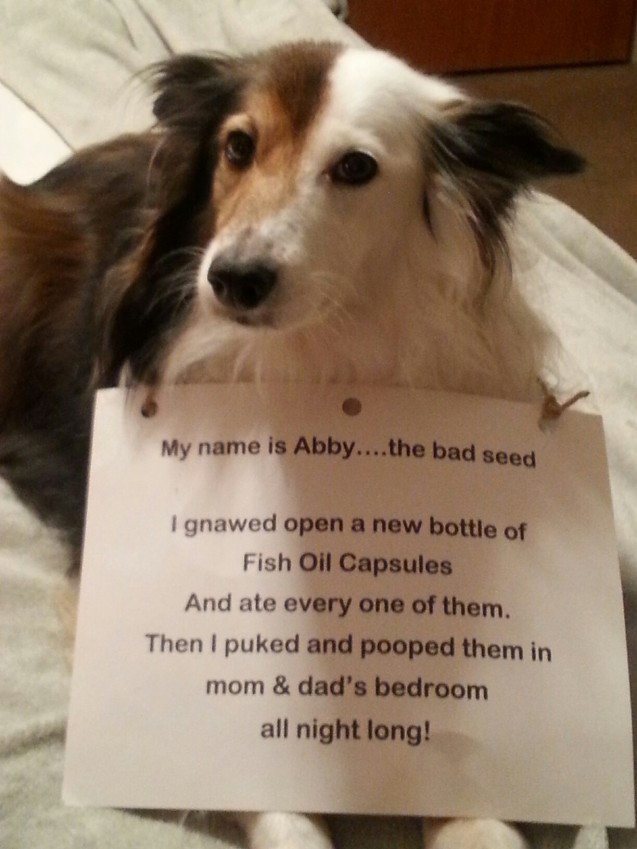 My name is Abby....the bad seed
I gnawed open a new bottle of
Fish Oil Capsules
And ate every one of them.
Then I puked and pooped them in
mom & dad's bedroom
all night long!